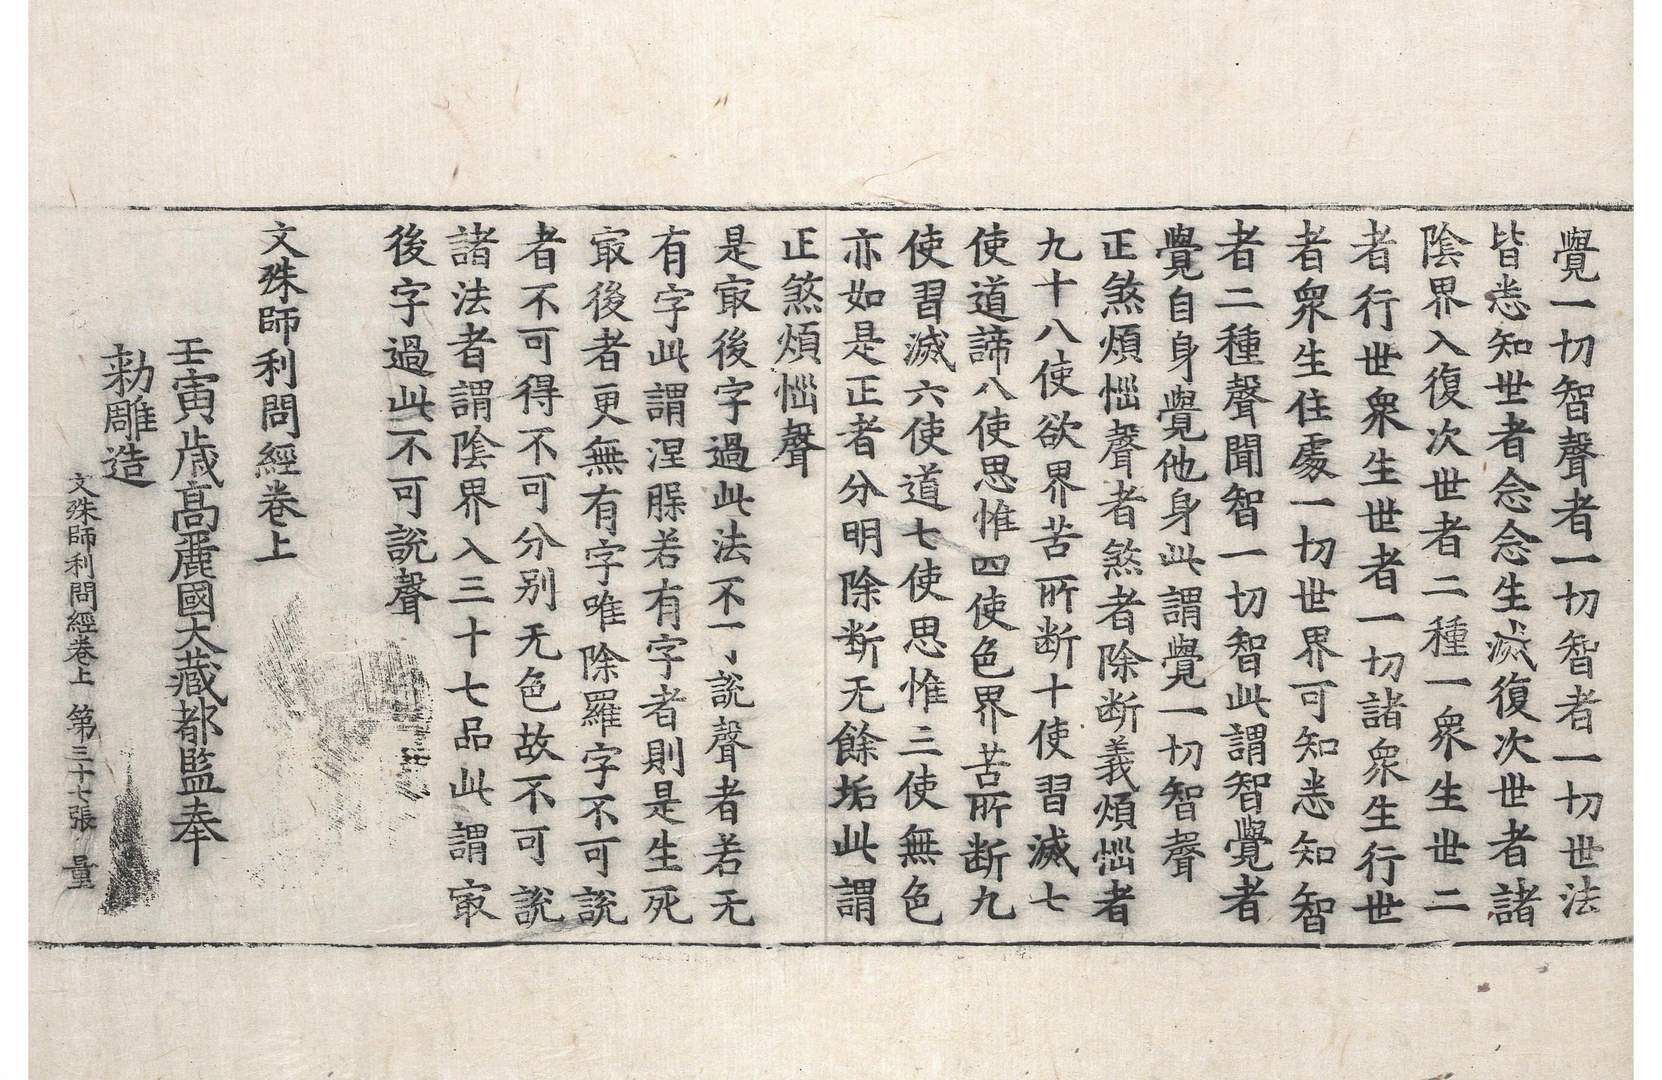 覺一切智聲者一切智者一切世法
皆悉知世者念念生滅復次世者諸
陰界入復次世者二種一衆生世二
者行世衆生世者一切諸衆生行世
者衆生住處一切世界可知悉知智
者二種聲聞智一切智此謂智覺者
覺自身覺他身此謂覺一切智聲
正煞煩惱聲者煞者除断義煩惱者
九十八使欲界苦所断十使習滅七
使道諦八使思惟四使色界苦所断九
使習滅六使道七使思惟三使無色
亦如是正者分明除断无餘垢此謂
正煞煩惱聲
是㝡後字過此法不可說聲者若无
有字此謂涅槃若有字者則是生死
㝡後者更無有字唯除羅字不可說
者不可得不可分别无色故不可說
諸法者謂陰界入三十七品此謂㝡
後字過此不可說聲
文殊師利問經卷上
壬寅歳高麗國大藏都監奉
勅雕造
文殊師利問經卷上 第三十七張 量